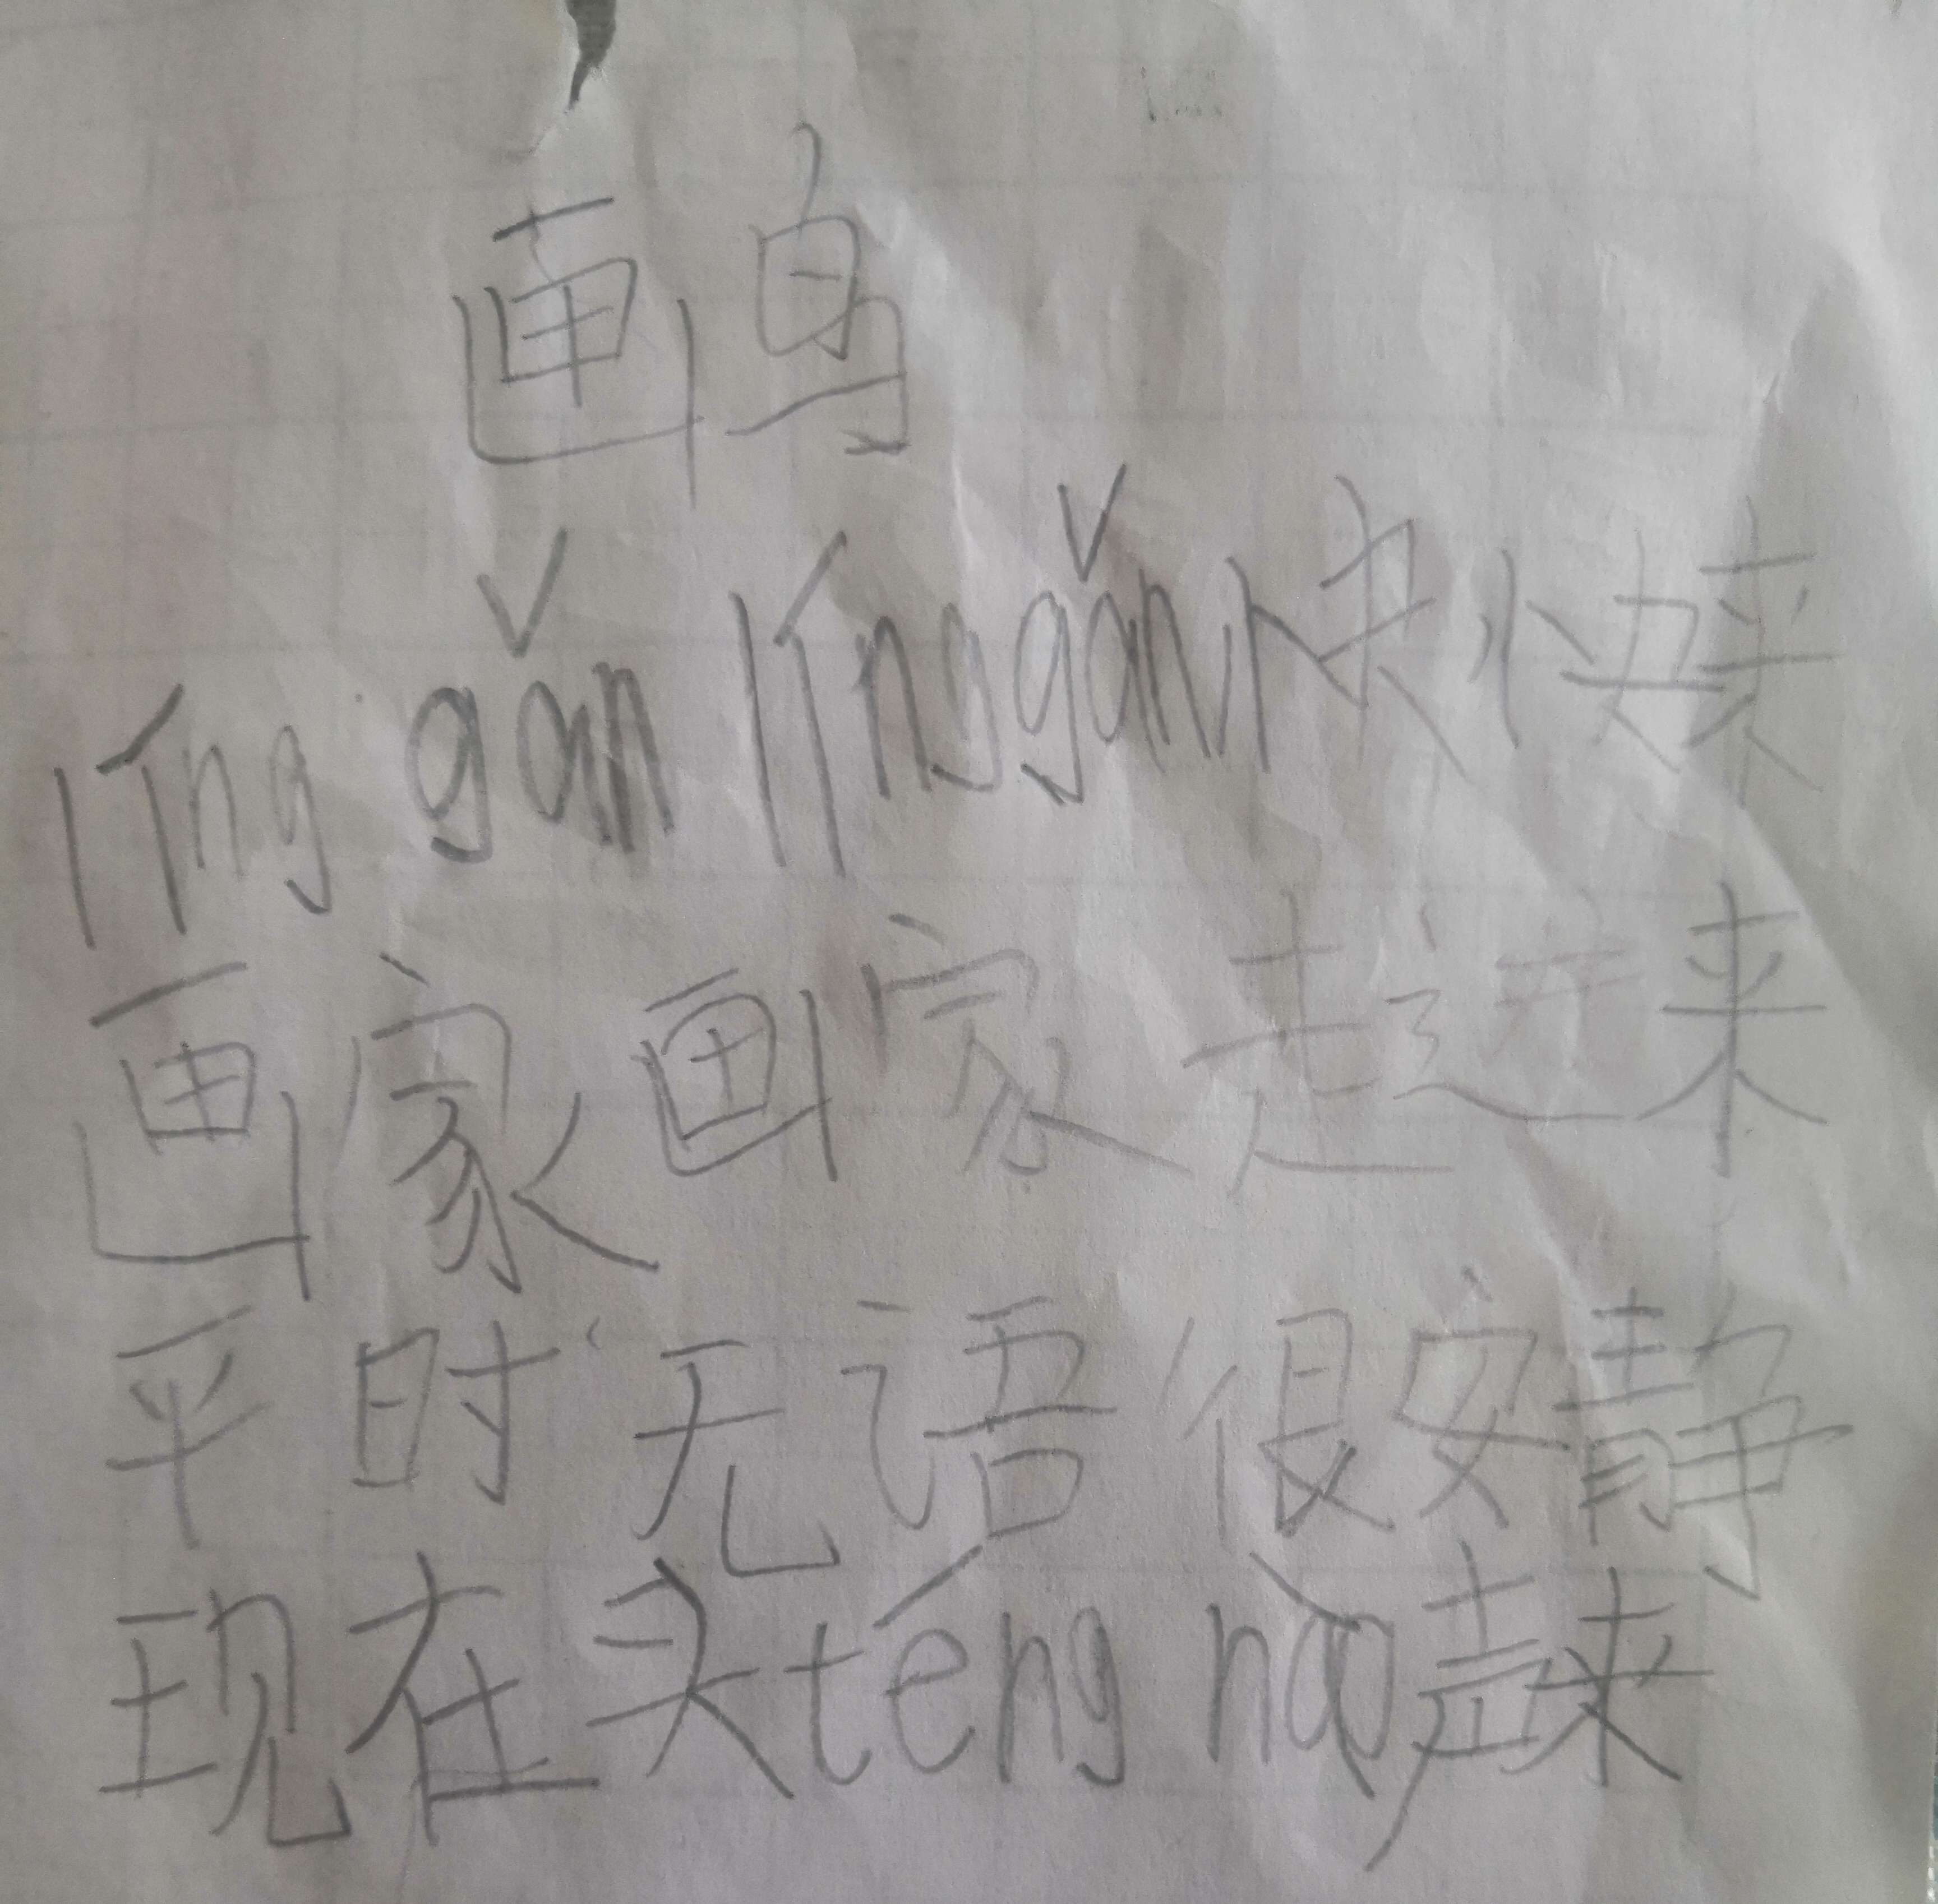 画鸟
líng gǎn líng gǎn 快快来
画家画家走过来
平时无语很安静
现在头téng nào声来